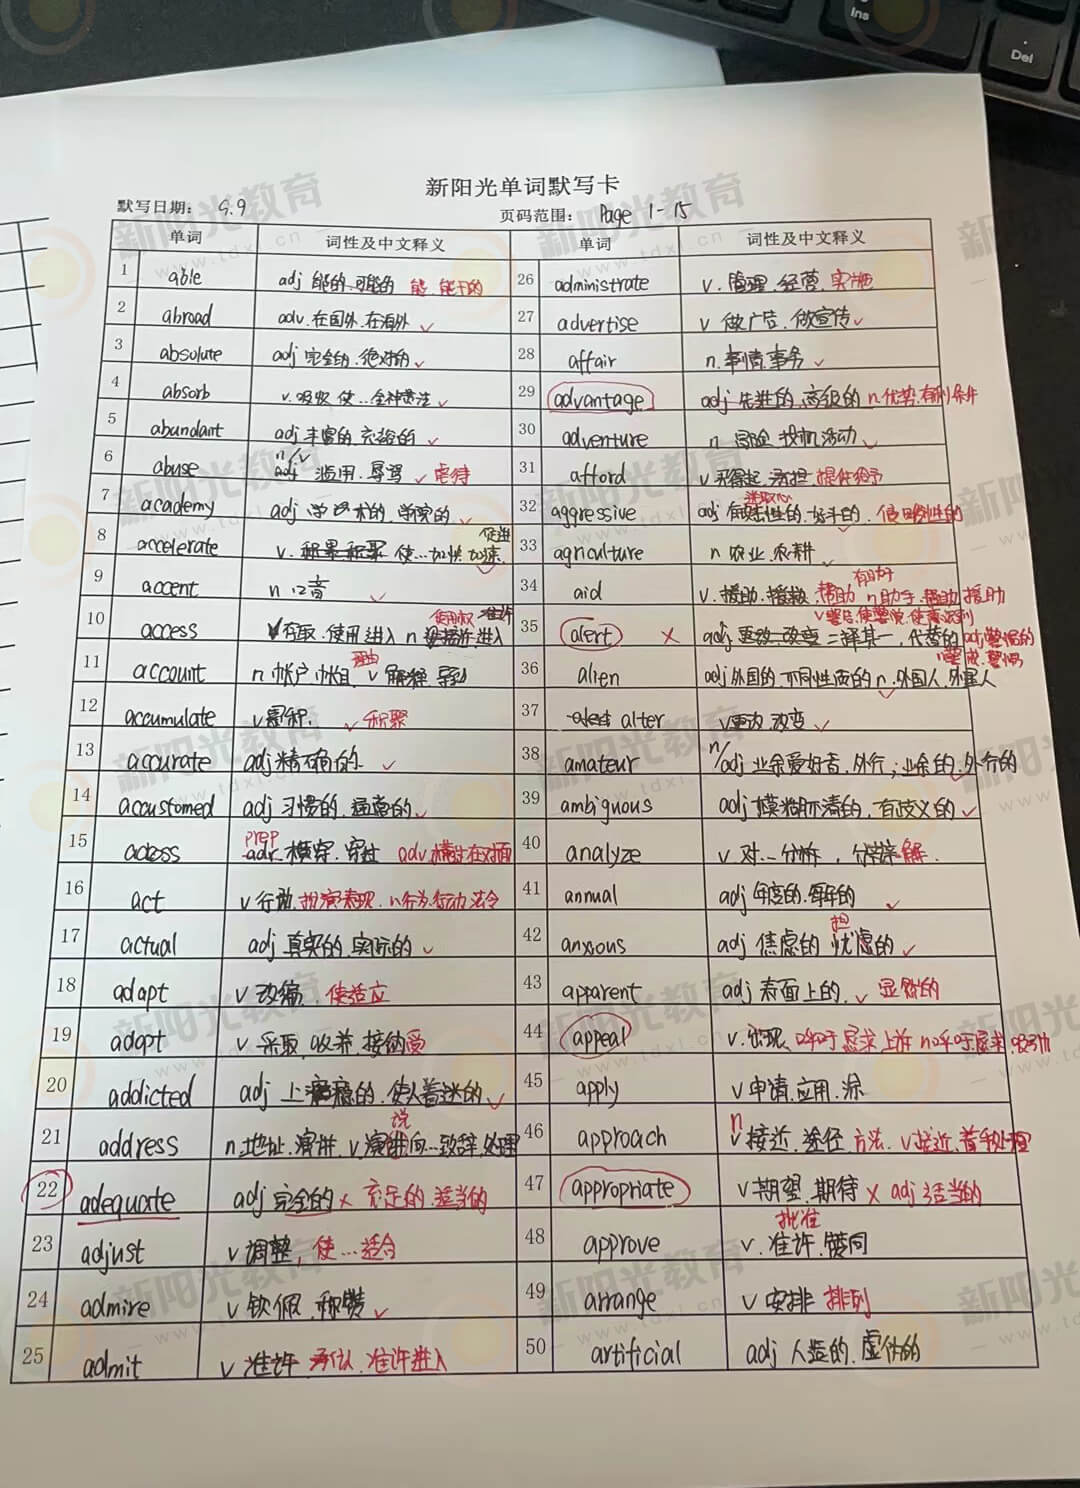 新阳光单词默写卡
默写日期: 9.9 页码范围: Page 1-15
单词 词性及中文释义 单词 词性及中文释义
1 able adj 能的,可能的 能,能干的
26 administrate v. 管理.经营.实施
2 abroad adv.在国外.在海外
27 advertise v 做广告,做宣传
3 absolute adj 完全的,绝对的
28 affair n.事情.事务
4 absorb v.吸收 使…全神贯注
29 advantage adj 先进的,高级的 n.优势.有利条件
5 abundant adj 丰富的.充裕的
30 adventure n 冒险
6 abuse n/v 滥用.辱骂 虐待
31 afford v 买得起 承担 提供给予
7 academy adj 学术的.学院的
32 aggressive adj 进取心 好斗的. 侵略性的
8 accelerate v. 使…加快 加速. 促进
33 agriculture n 农业.农耕
9 accent n 口音
34 aid v.援助.援救 帮助 n助手.辅助援助 有助于
10 access 使用 进入 n 进入 使用权 准许
35 alert adj 更改.改变 二择其一,代替的 adj警惕的
11 account n 帐户 帐目. v 解释 导致 理由
36 alien adj外国的.不同性质的 n.外国人.外星人
12 accumulate v 累积. 积聚
37 alter v更改.改变
13 accurate adj 精确的
38 amateur n/adj 业余爱好者.外行;业余的.外行的
14 accustomed adj 习惯的.适应的
39 ambiguous adj 模糊不清的,有歧义的
15 prep 横穿.穿过 adv
40 analyze v.对…分析, 分解.
16 act v 行动.扮演表现.n行为.行动.法令
41 annual adj 年度的.每年的
17 actual adj 真实的.实际的
42 anxious adj 焦虑的 忧虑的 担
18 adapt v 改编.使适应
43 apparent adj 表面上的. 显然的
19 adopt v 采取,收养.接纳受
44 appeal v.出现. 呼吁 恳求 上诉 n呼吁恳求.吸引力
20 addicted adj 上瘾的.使人着迷的
45 apply v 申请.应用.涂
21 address n.地址.演讲.v 演说 向…致辞.处理
46 approach n v 接近.途径 方法. v接近.着手处理
22 adequate adj 完全的 × 充足的.适当的
47 appropriate v 期望.期待 × adj 适当的
23 adjust v 调整, 使…适合
48 approve v.准许.赞同 批准
24 admire v 钦佩.称赞
49 arrange v 安排 排列
25 admit v 准许 承认.准许进入
50 artificial adj 人造的.虚伪的
Ins
Del
新阳光教育
www.tdxl.cn